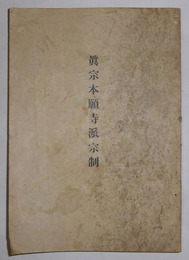 眞宗本願寺派宗制